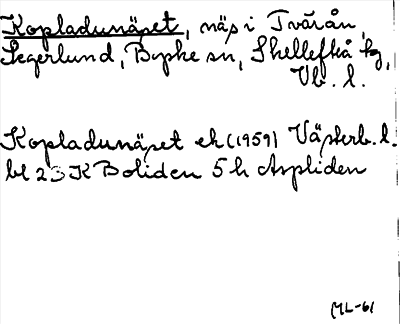 Kopladunäset, näs i Tvärån,
Segerlund, Byske sn, Skellefteå kg,
Vb. l.
Kopladunäset ek (1959) Västerb. l.
bl 23 K Boliden 5 h Aspliden
ML-61